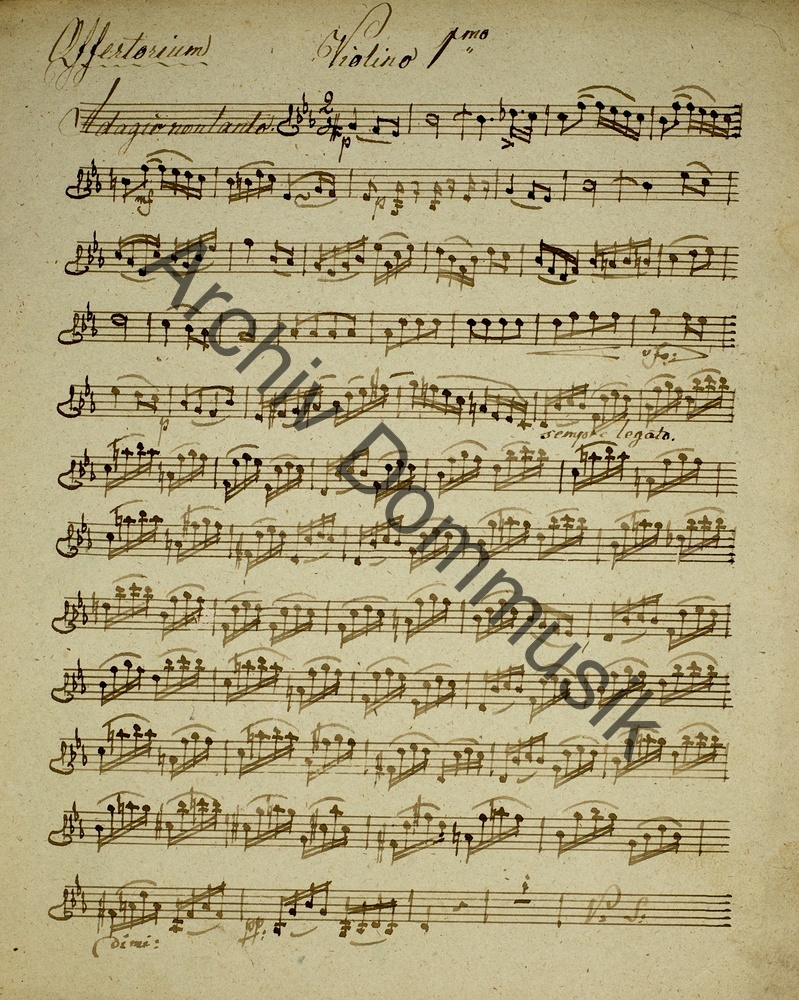 Offertorium Violino 1mo
Adagio non tanto.
2
p
mf
p
sfo:
p
sempre legato.
dimi: pp: V. S.
Archiv Dommusik